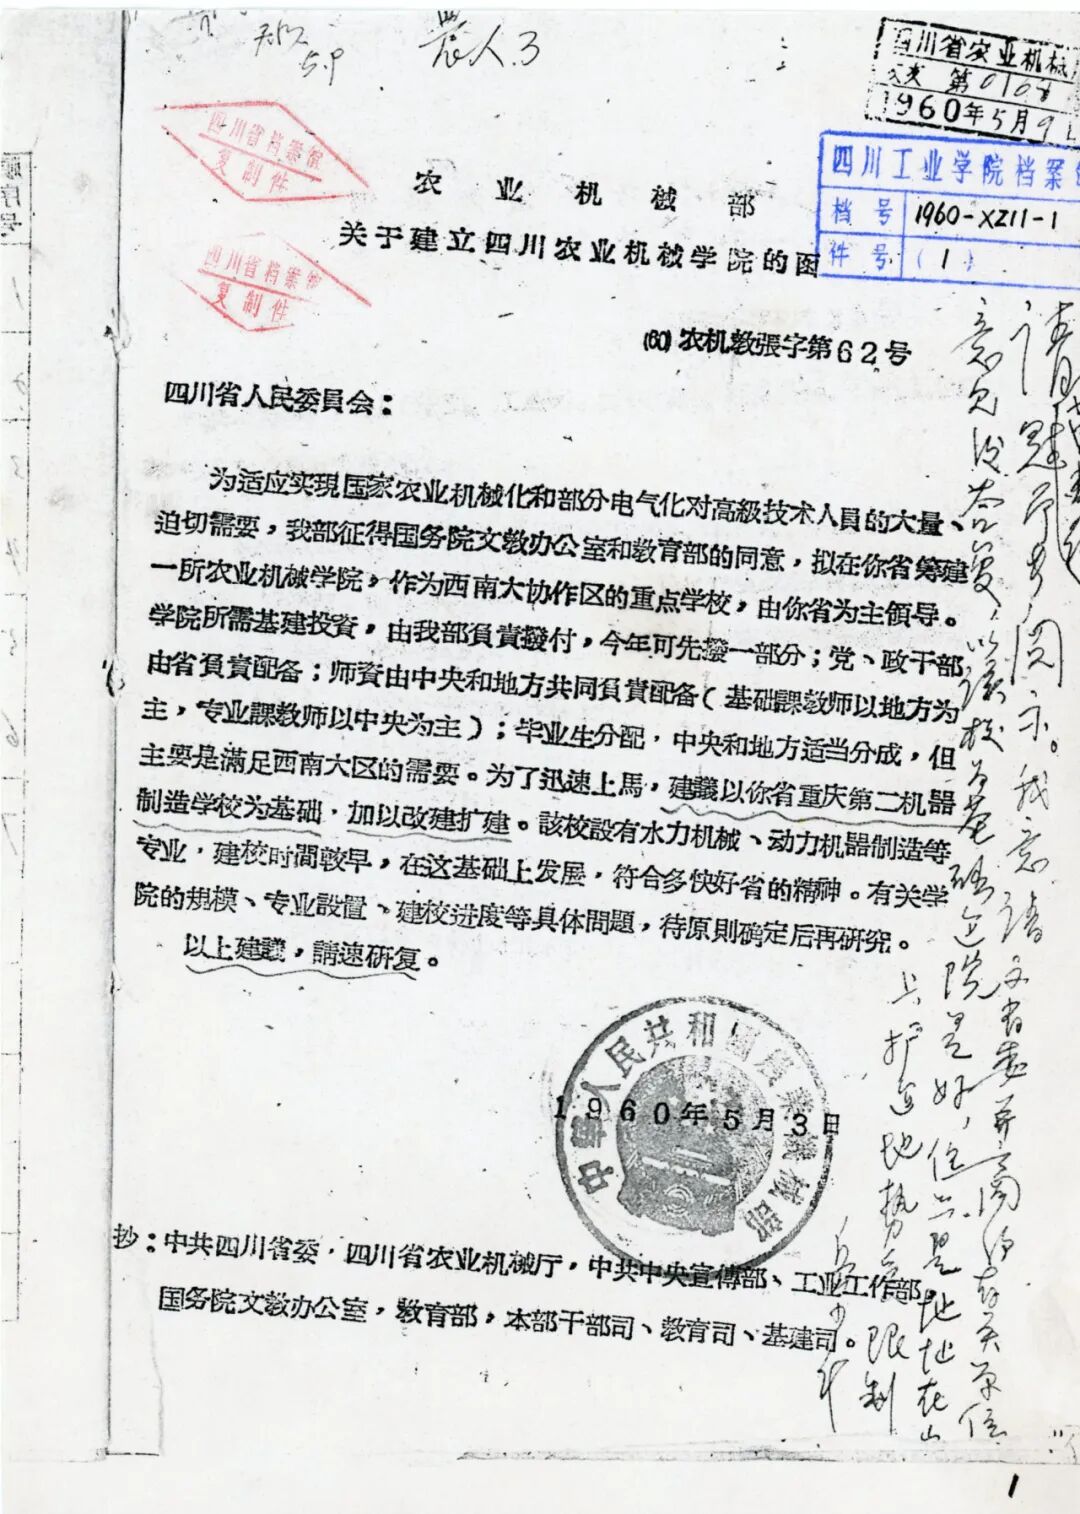 農人.3
5.9
四川省农业机械
收文 第0108
1960年5月9日
四川省档案馆
复制件
四川省档案馆
复制件
四川工业学院档案
档号 1960-XZ11-1
件号 (1)
农业机械部
关于建立四川农业机械学院的函
(60)农机教張字第62号
四川省人民委員会：
为适应实現国家农业机械化和部分电气化对高級技术人員的大量、
迫切需要，我部征得国务院文教办公室和教育部的同意，拟在你省筹建
一所农业机械学院，作为西南大协作区的重点学校，由你省为主領导。
学院所需基建投資，由我部負責撥付，今年可先撥一部分；党、政干部
由省負責配备；师資由中央和地方共同負責配备（基础課教师以地方为
主，专业課教师以中央为主）；毕业生分配，中央和地方适当分成，但
主要是滿足西南大区的需要。为了迅速上馬，建議以你省重庆第二机器
制造学校为基础，加以改建扩建。該校設有水力机械、动力机器制造等
专业，建校时間較早，在这基础上发展，符合多快好省的精神。有关学
院的規模、专业設置、建校进度等具体問題，待原則确定后再研究。
以上建議，請速研复。
中華人民共和國農業機械部
1960年5月3日
抄：中共四川省委，四川省农业机械厅，中共中央宣傳部、工业工作部，
国务院文教办公室，教育部，本部干部司、教育司、基建司。
阅示。我意請文省委并商有关单位
意見后答复，以該校为基础建院是好，但只是地址在山
上扩建地势受限制
顺序号
1